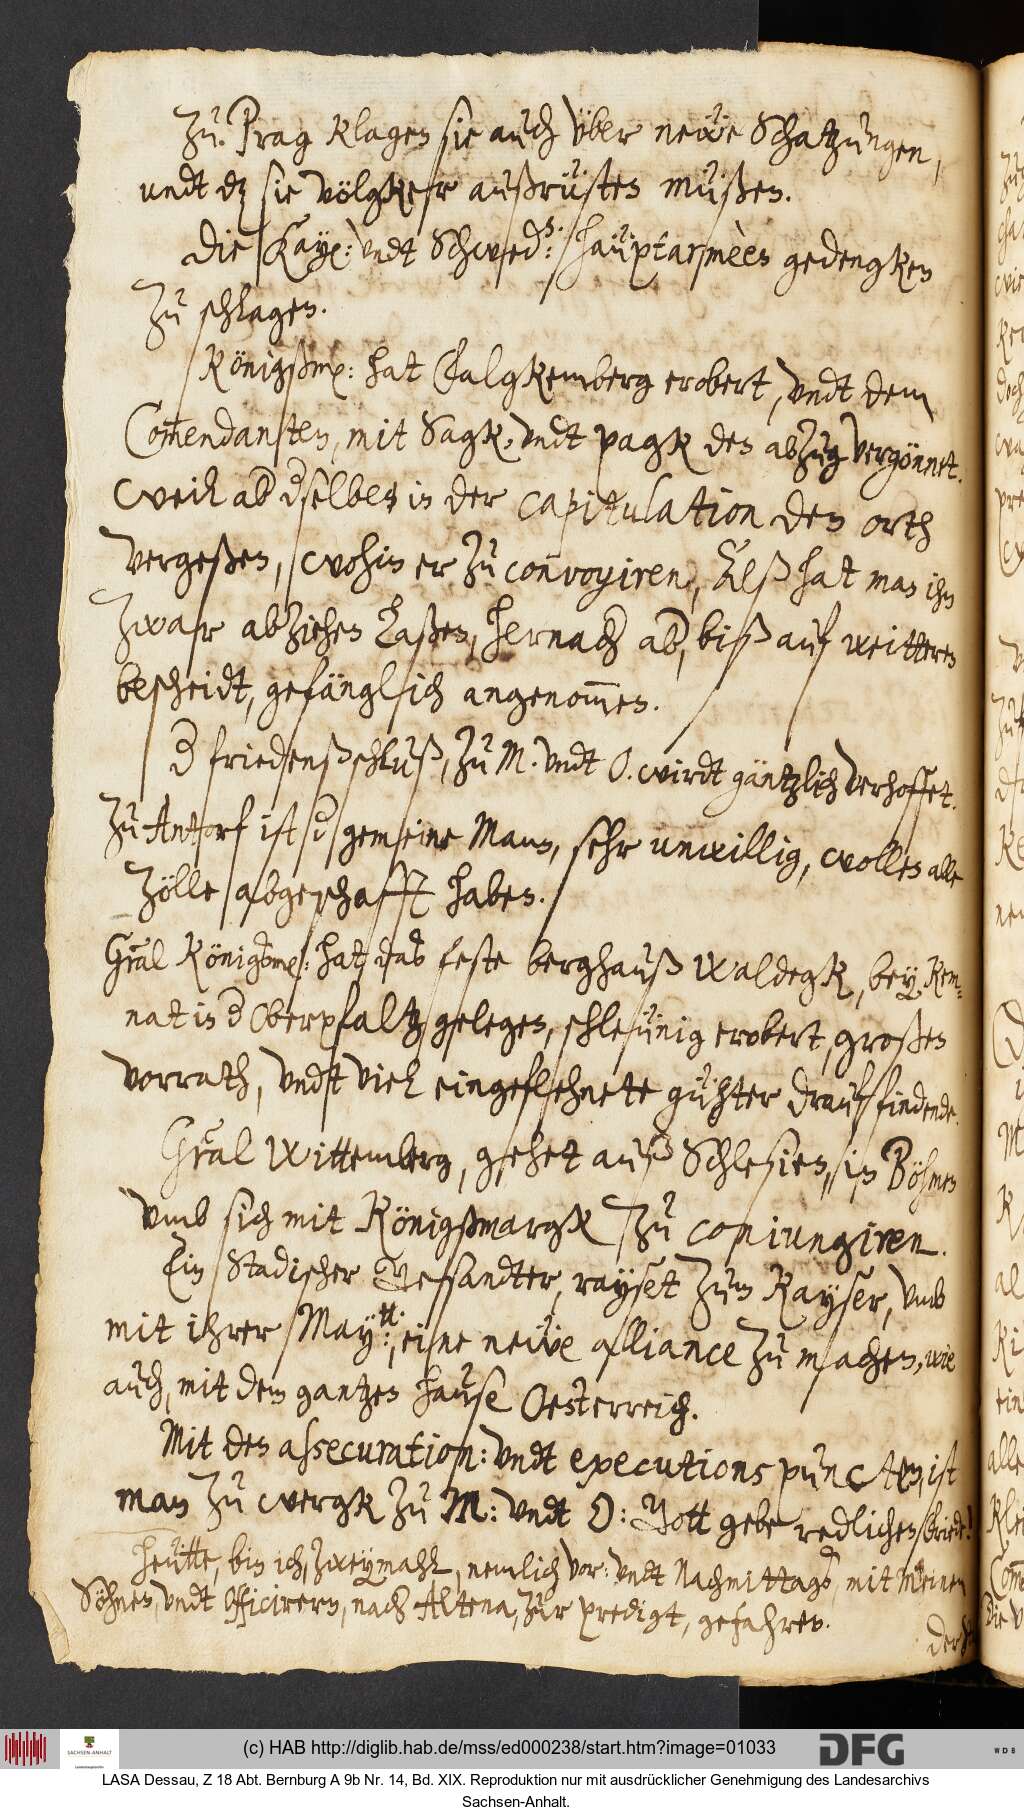 Zu Prag klagen sie auch vber neẅe Schatzungen,
undt dz sie völgker außrüsten müßen.
Die Kay: vndt Schwed: haüptarmèen gedengken
zu schlagen.
Königßm: hat Falgkemberg erobert, vndt dem
Commendanten, mit Sagk, vndt pagk den abzug vergönnet.
Weil ab derselbe in der capitulation den orth
vergeßen, wohin er zu convoyiren, Alß hat man ihn
zwar abziehen laßen, hernach ab, biß auf weitteren
bescheidt, gefänglich angenommen.
d friedensschluß, zu M. vndt O. wirdt gäntzlich verhoffet.
Zu Antorf ist d gemeine Mann, sehr unwillig, wollen alle
Zölle abgeschafft haben.
Gral Königsm: hat das feste berghauß Waldegk, bey Kem¬
nat in d Oberpfaltz gelegen, schleünig erobert, großen
vorrath, vndt viel eingeflehnete gühter drauf findende.
Gral Wittemberg, gehet auß Schlesien, in Böhmen
vmb sich mit Königßmargk zu coniungiren.
Ein Stadischer Gesandter, rayset zum Kayser, vmb
mit ihrer May:tt:, eine neẅe alliance zu machen, wie
auch, mit dem gantzen hause Oesterreich.
Mit den assecuration: vndt executions puncten, ist
man zu wergk zu M: vndt O: Gott gebe redlichen friede!
Heütte, bin ich, zweymahl, nemlich vor: vndt Nachmittags, mit meinen
Söhnen, vndt Officirern, nach Altena, zur predigt, gefahren.
der
(c) HAB http://diglib.hab.de/mss/ed000238/start.htm?image=01033
SACHSEN-ANHALT
DFG
WDB
LASA Dessau, Z 18 Abt. Bernburg A 9b Nr. 14, Bd. XIX. Reproduktion nur mit ausdrücklicher Genehmigung des Landesarchivs
Sachsen-Anhalt.